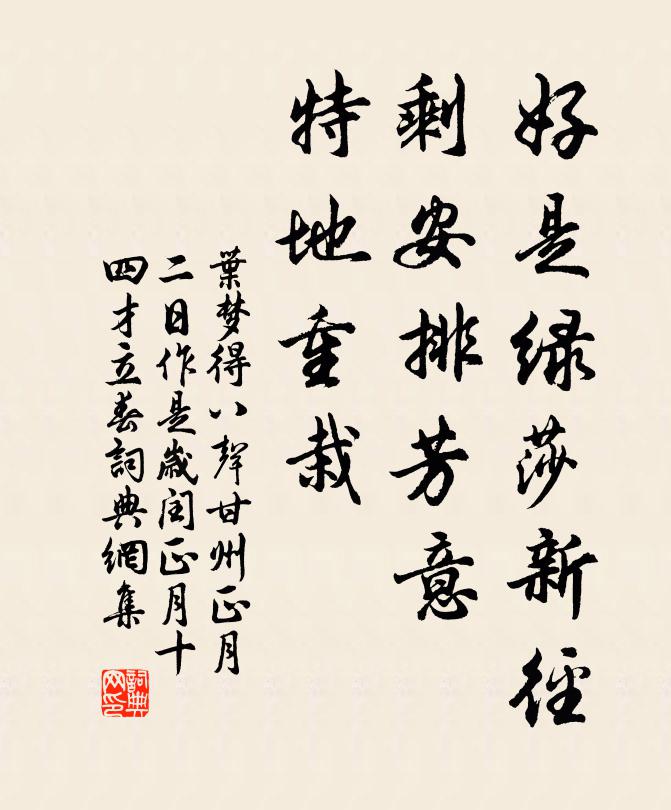 好是绿莎新徑
剩安排芳意
特地重栽
葉梦得八聲甘州正月
二日作是歲闰正月十
四才立春詞典網集
詞典
网印